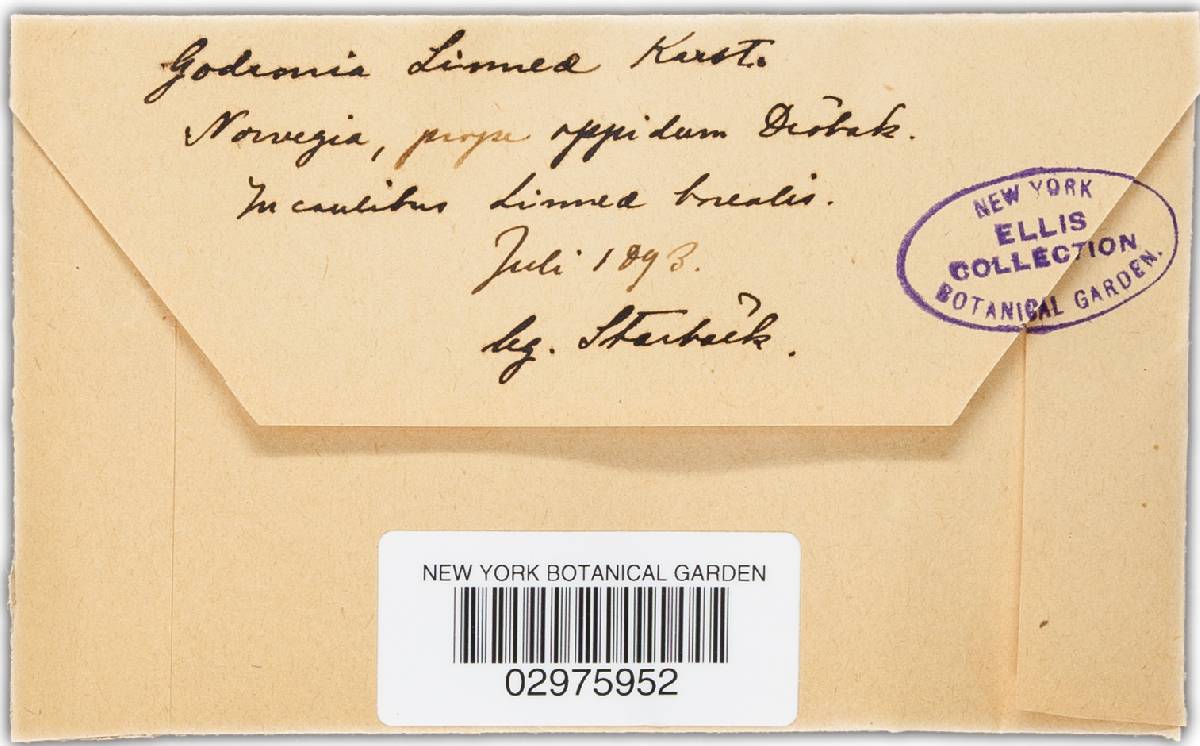 Godronia Linneæ Karst.
Norvegia, prope oppidum Dröbak.
In caulibus Linneæ borealis.
Juli 1893.
leg. Starbäck.
NEW YORK
ELLIS
COLLECTION
BOTANICAL GARDEN.
NEW YORK BOTANICAL GARDEN
02975952